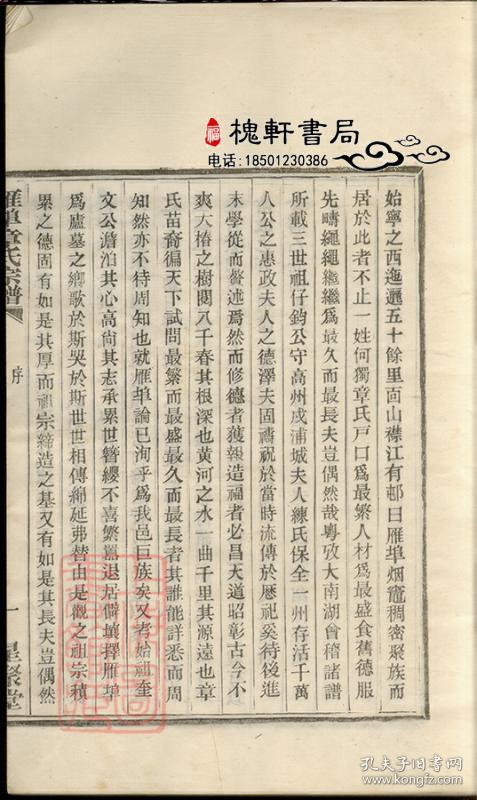 槐軒書局
电话:18501230386
始寧之西迤邐五十餘里面山襟江有邨曰雁埠烟竈稠密聚族而
居於此者不止一姓何獨章氏戸口爲最繁人材爲最盛食舊德服
先疇繩繩繼繼爲最久而最長夫豈偶然哉粵攷大南湖會稽諸譜
所載三世祖仔鈞公守高州戍浦城夫人練氏保全一州存活千萬
人公之惠政夫人之德澤夫固禱祝於當時流傳於歷祀奚待後進
末學從而贅述焉然而修德者獲報造福者必昌天道昭彰古今不
爽大椿之樹閱八千春其根深也黄河之水一曲千里其源遠也章
氏苗裔徧天下試問最繁而最盛最久而最長者其誰能詳悉而周
知然亦不待周知也就雁埠論已洵乎爲我邑巨族矣又者始祖奎
文公澹泊其心高尙其志承累世簪纓不喜繁囂退居僻壤擇雁埠
爲廬墓之鄉歌於斯哭於斯世世相傳綿延弗替由是觀之祖宗積
累之德固有如是其厚而祖宗締造之基又有如是其長夫豈偶然
雁埠章氏宗譜
序
一
星聚堂
孔夫子旧书网
www.kongfz.com